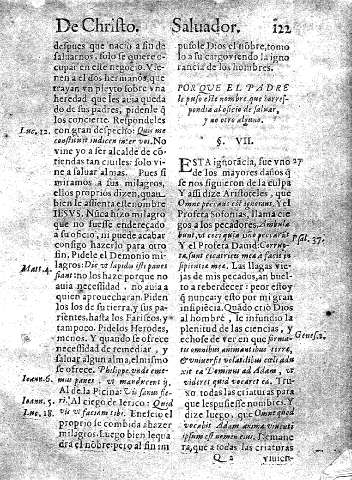 De Christo. Salvador. 122
despues que nacio a fin de
saluarnos, solo se quiere o-
cupar en este negocio. Vie-
nen a el dos hermanos, que
trayan vn pleyto sobre vna
heredad que les auia queda-
do de sus padres, pidenle q̃
los concierte. Respondeles
con gran despecho: Quis me
constituit iudicem inter vos. No
vine yo a ser alcalde de co-
tiendas tan ciuiles: solo vi-
ne a saluar almas. Pues si
miramos a sus milagros,
ellos proprios dizen, quan
bien le assienta este nombre
IESVS. Nũca hizo milagro
que no fuesse endereçado
a su oficio, ni puede acabar
consigo hazerlo para otro
fin. Pidele el Demonio mi-
lagros: Dic vt lapides isti panes
fiant: no los haze porque no
auia necessidad, no auia a
quien aprouecharan. Piden
los los de su tierra, y sus pa-
rientes, hasta los Fariseos, y
tampoco. Pidelos Herodes,
menos. Y quando se ofrece
necessidad de remediar, y
saluar algun alma, el mismo
se ofrece. Philippe vnde eme-
mus panes, vt manducent ij.
Al de la Picina: Vis sanus fie-
ri. Al ciego de Ierico: Quid
vis vt faciam tibi. En esto el
proprio se combida a hazer
milagros. Luego bien le qua
dra el nõbre: pero al fin im
Luc. 12.
Matt. 4.
Ioann. 6.
Ioann. 5.
Luc. 18.
pusole Dios el nõbre, como
lo a su cargo viendo la igno
rancia de los hombres.
PORQUE EL PADRE
le puso este nombre que corres-
pondia al oficio de saluar,
y no otro alguno.
§. VII.
ESTA ignorãcia, fue vno
de los mayores daños q̃
se nos siguieron de la culpa
Y assi dize Aristoteles, que
Omne peccans est ignorans. Y el
Profeta Sofonias, llama cie
gos a los pecadores. Ambula
bunt, vt cæci quia vino peccarunt
Y el Profeta Dauid: Corrup-
ta, sunt cicatrices meæ a facie in
sipientiæ meæ. Las llagas vie-
jas de mis pecados, an buel-
to a reberdecer: peor estoy
q̃ nunca: y esto por mi gran
insipiẽcia. Quãdo crio Dios
al hombre, le infundio la
plenitud de las ciencias, y
echose de ver en que forma-
tis omnibus animantibus terræ,
& vniuersis volatilibus cœli adu
xit ea Dominus ad Adam, vt
videret quid vocaret ea. Tru-
xo todas las criaturas para
que les pusiesse nombres. Y
dize luego, que Omne quod
vocabit Adam animæ viuentis
ipsum est nomen eius. De mane
ra, que a todas las criaturas
27
Psal. 37.
Genes. 2.
Q 2 viuien-